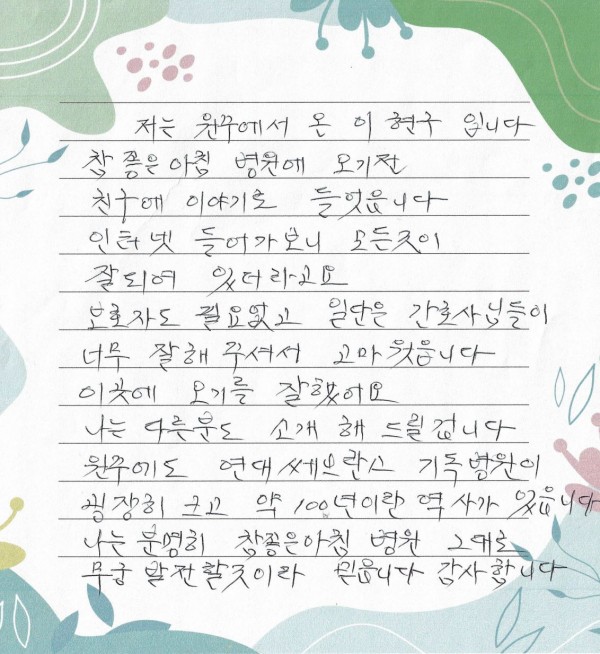 저는 원주에서 온 이현구 입니다
참좋은아침 병원에 오기전
친구에 이야기로 들었읍니다
인터넷 들어가보니 모든것이
잘되여 있더라고요
보호자도 필요없고 일단은 간호사님들이
너무 잘해 주셔서 고마웟읍니다
이곳에 오기를 잘했어요
나는 다른분도 소개 해 드릴겁니다
원주에도 연대쎄브란스 기독병원이
굉장히 크고 약 100년이란 역사가 있읍니다
나는 분명히 참좋은아침 병원 그대로
무궁 발전할것이라 믿읍니다 감사합니다